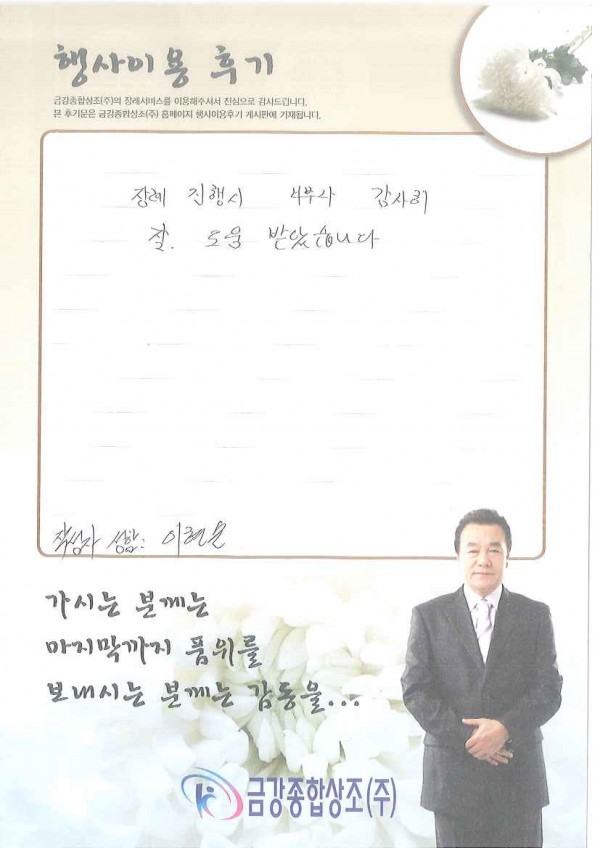 행사이용 후기
금강종합상조(주)의 장례서비스를 이용해주셔서 진심으로 감사드립니다.
본 후기문은 금강종합상조(주) 홈페이지 행사이용후기 게시판에 기재됩니다.
장례 진행시 감사히
잘. 도움 받았습니다
작성자 성함: 이현
가시는 분께는
마지막까지 품위를
보내시는 분께는 감동을...
금강종합상조(주)